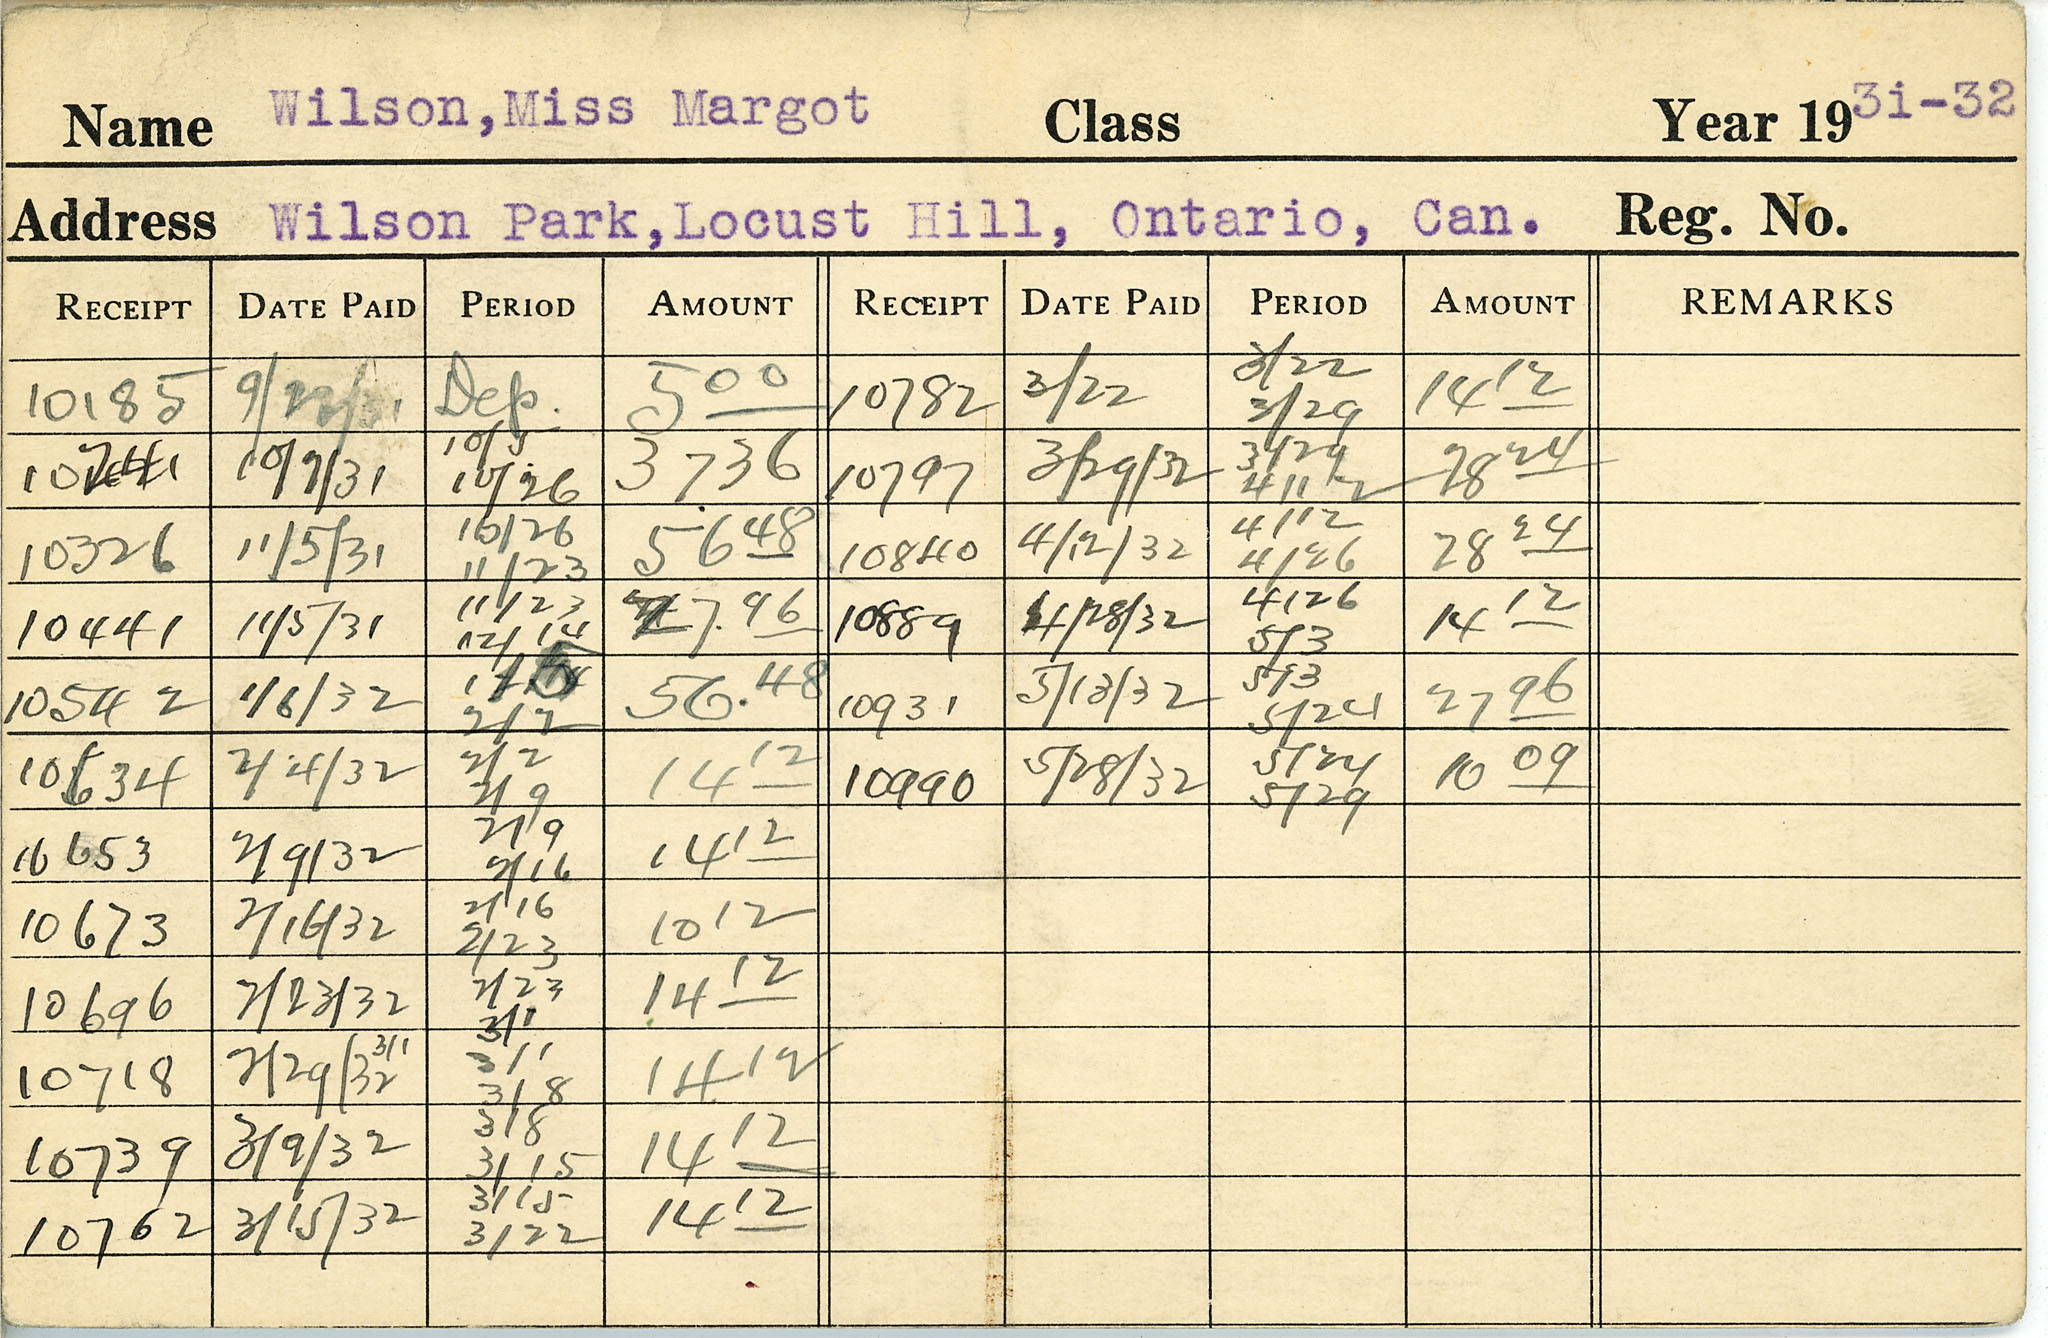 Name Wilson,Miss Margot Class Year 193i-32
Address Wilson Park,Locust Hill, Ontario, Can. Reg. No.
RECEIPT DATE PAID PERIOD AMOUNT RECEIPT DATE PAID PERIOD AMOUNT REMARKS
10185 9/22/31 Dep. 5 00 10782 3/22 3/22 3/29 14 12
10/7/31 10/5 10/26 37 36 10797 3/29/32 3/29 4/12 28 24
10326 11/5/31 10/26 11/23 56 48 10840 4/12/32 4/12 4/26 28 24
10441 11/5/31 11/23 12/14 7.96 10889 4/28/32 4/26 5/3 14 12
10542 1/6/32 2/2 56.48 10931 5/13/32 5/3 5/24 27 96
10634 2/4/32 2/2 2/9 14 12 10990 5/28/32 5/24 5/29 10 09
10653 2/9/32 2/9 2/16 14 12
10673 2/16/32 2/16 2/23 10 12
10696 2/23/32 2/23 3/1 14 12
10718 2/29/32 3/1 3/1 3/8 14 12
10739 3/9/32 3/8 3/15 14 12
10762 3/15/32 3/15 3/22 14 12